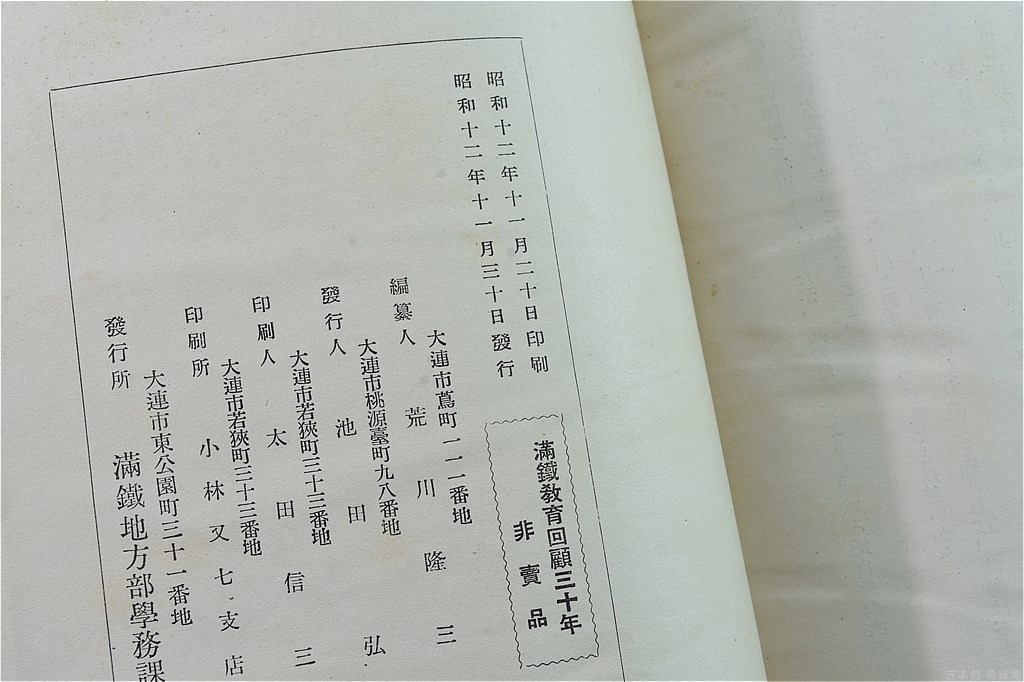 昭和十二年十一月二十日印刷
昭和十二年十一月三十日發行
滿鐵敎育回顧三十年
非賣品
大連市蔦町一一一番地
編纂人 荒川隆三
大連市桃源臺町九八番地
發行人 池田弘
大連市若狹町三十三番地
印刷人 太田信三
大連市若狹町三十三番地
印刷所 小林又七支店
大連市東公園町三十一番地
發行所 滿鐵地方部學務課